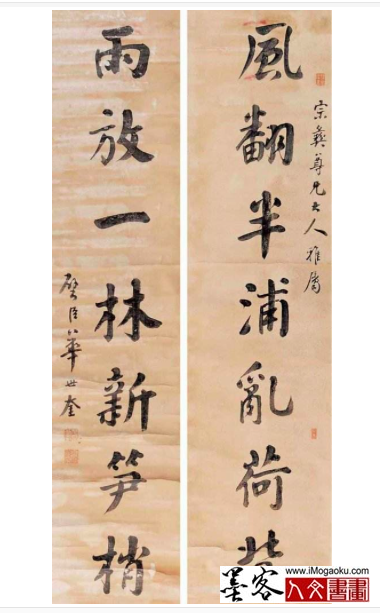 宗彝尊兄大人雅屬
風翻半浦亂荷
雨放一林新笋梢
璧臣華世奎
www.iMogaoku.com
墨客人文書畫